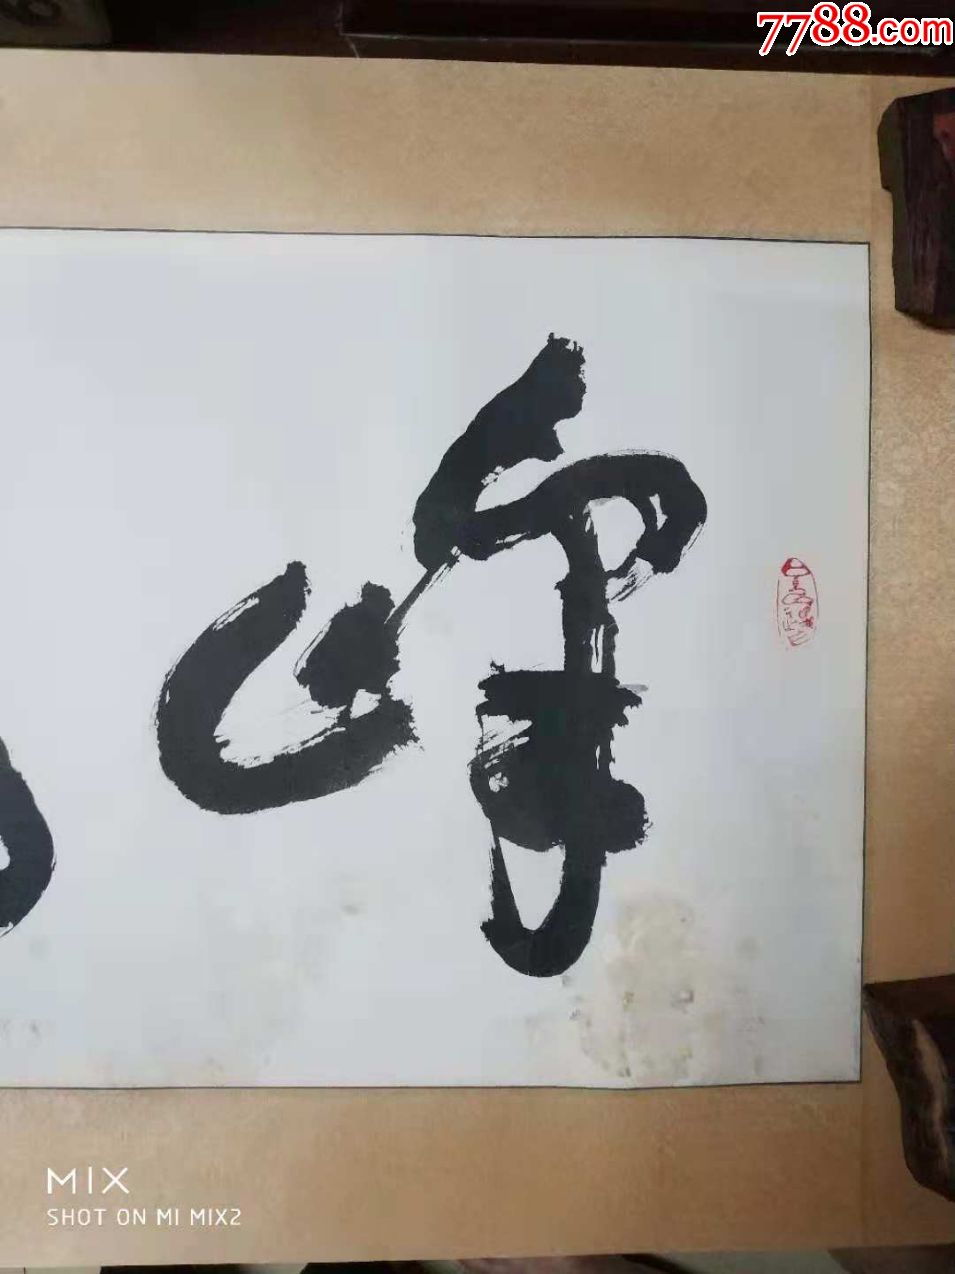 7788.com
峰
MIX
SHOT ON MI MIX2